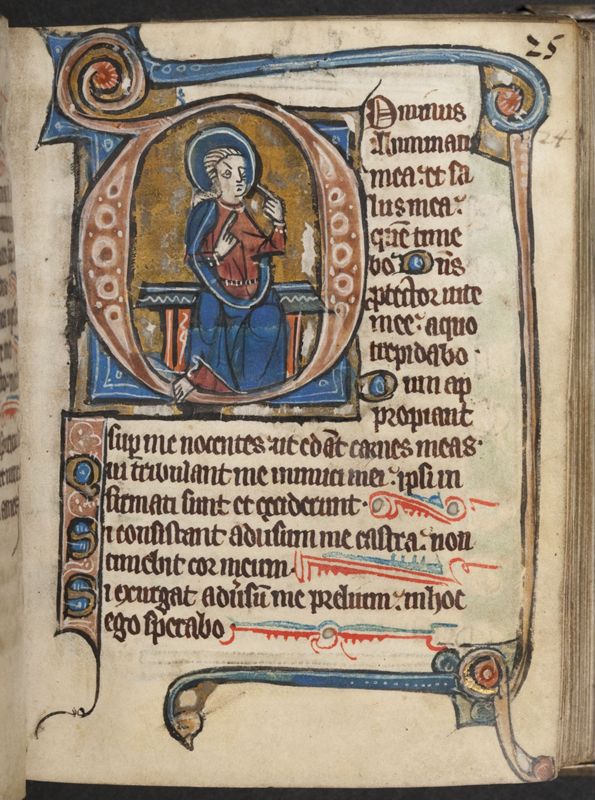 25
24
Dominus
illuminatio
mea et sa
lus mea
quē time
bo Dn̄s
ꝓtector uite
mee a quo
trepidabo
Dum ap
propiant
suꝑ me nocentes ut edāt carnes meas
Qui tribulant me inimici mei ipsi in
firmati sunt et ceciderunt
Si consistant aduersum me castra non
timebit cor meum
Si exurgat aduersū me prelium in hoc
ego sperabo